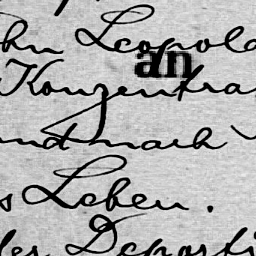 Leopold
an
Konzentra
und nach
s Leben.
Deporti